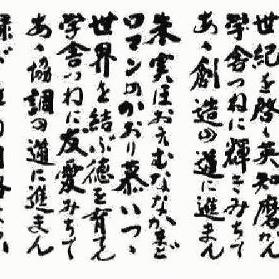 世紀を啓く英知磨かん
学舎つねに輝きみちて
あゝ創造の道に進まん
朱実ほおえむななかまど
ロマンのかおり慕いつゝ
世界を結ぶ徳を育てん
学舎つねに友愛みちて
あゝ協調の道に進まん